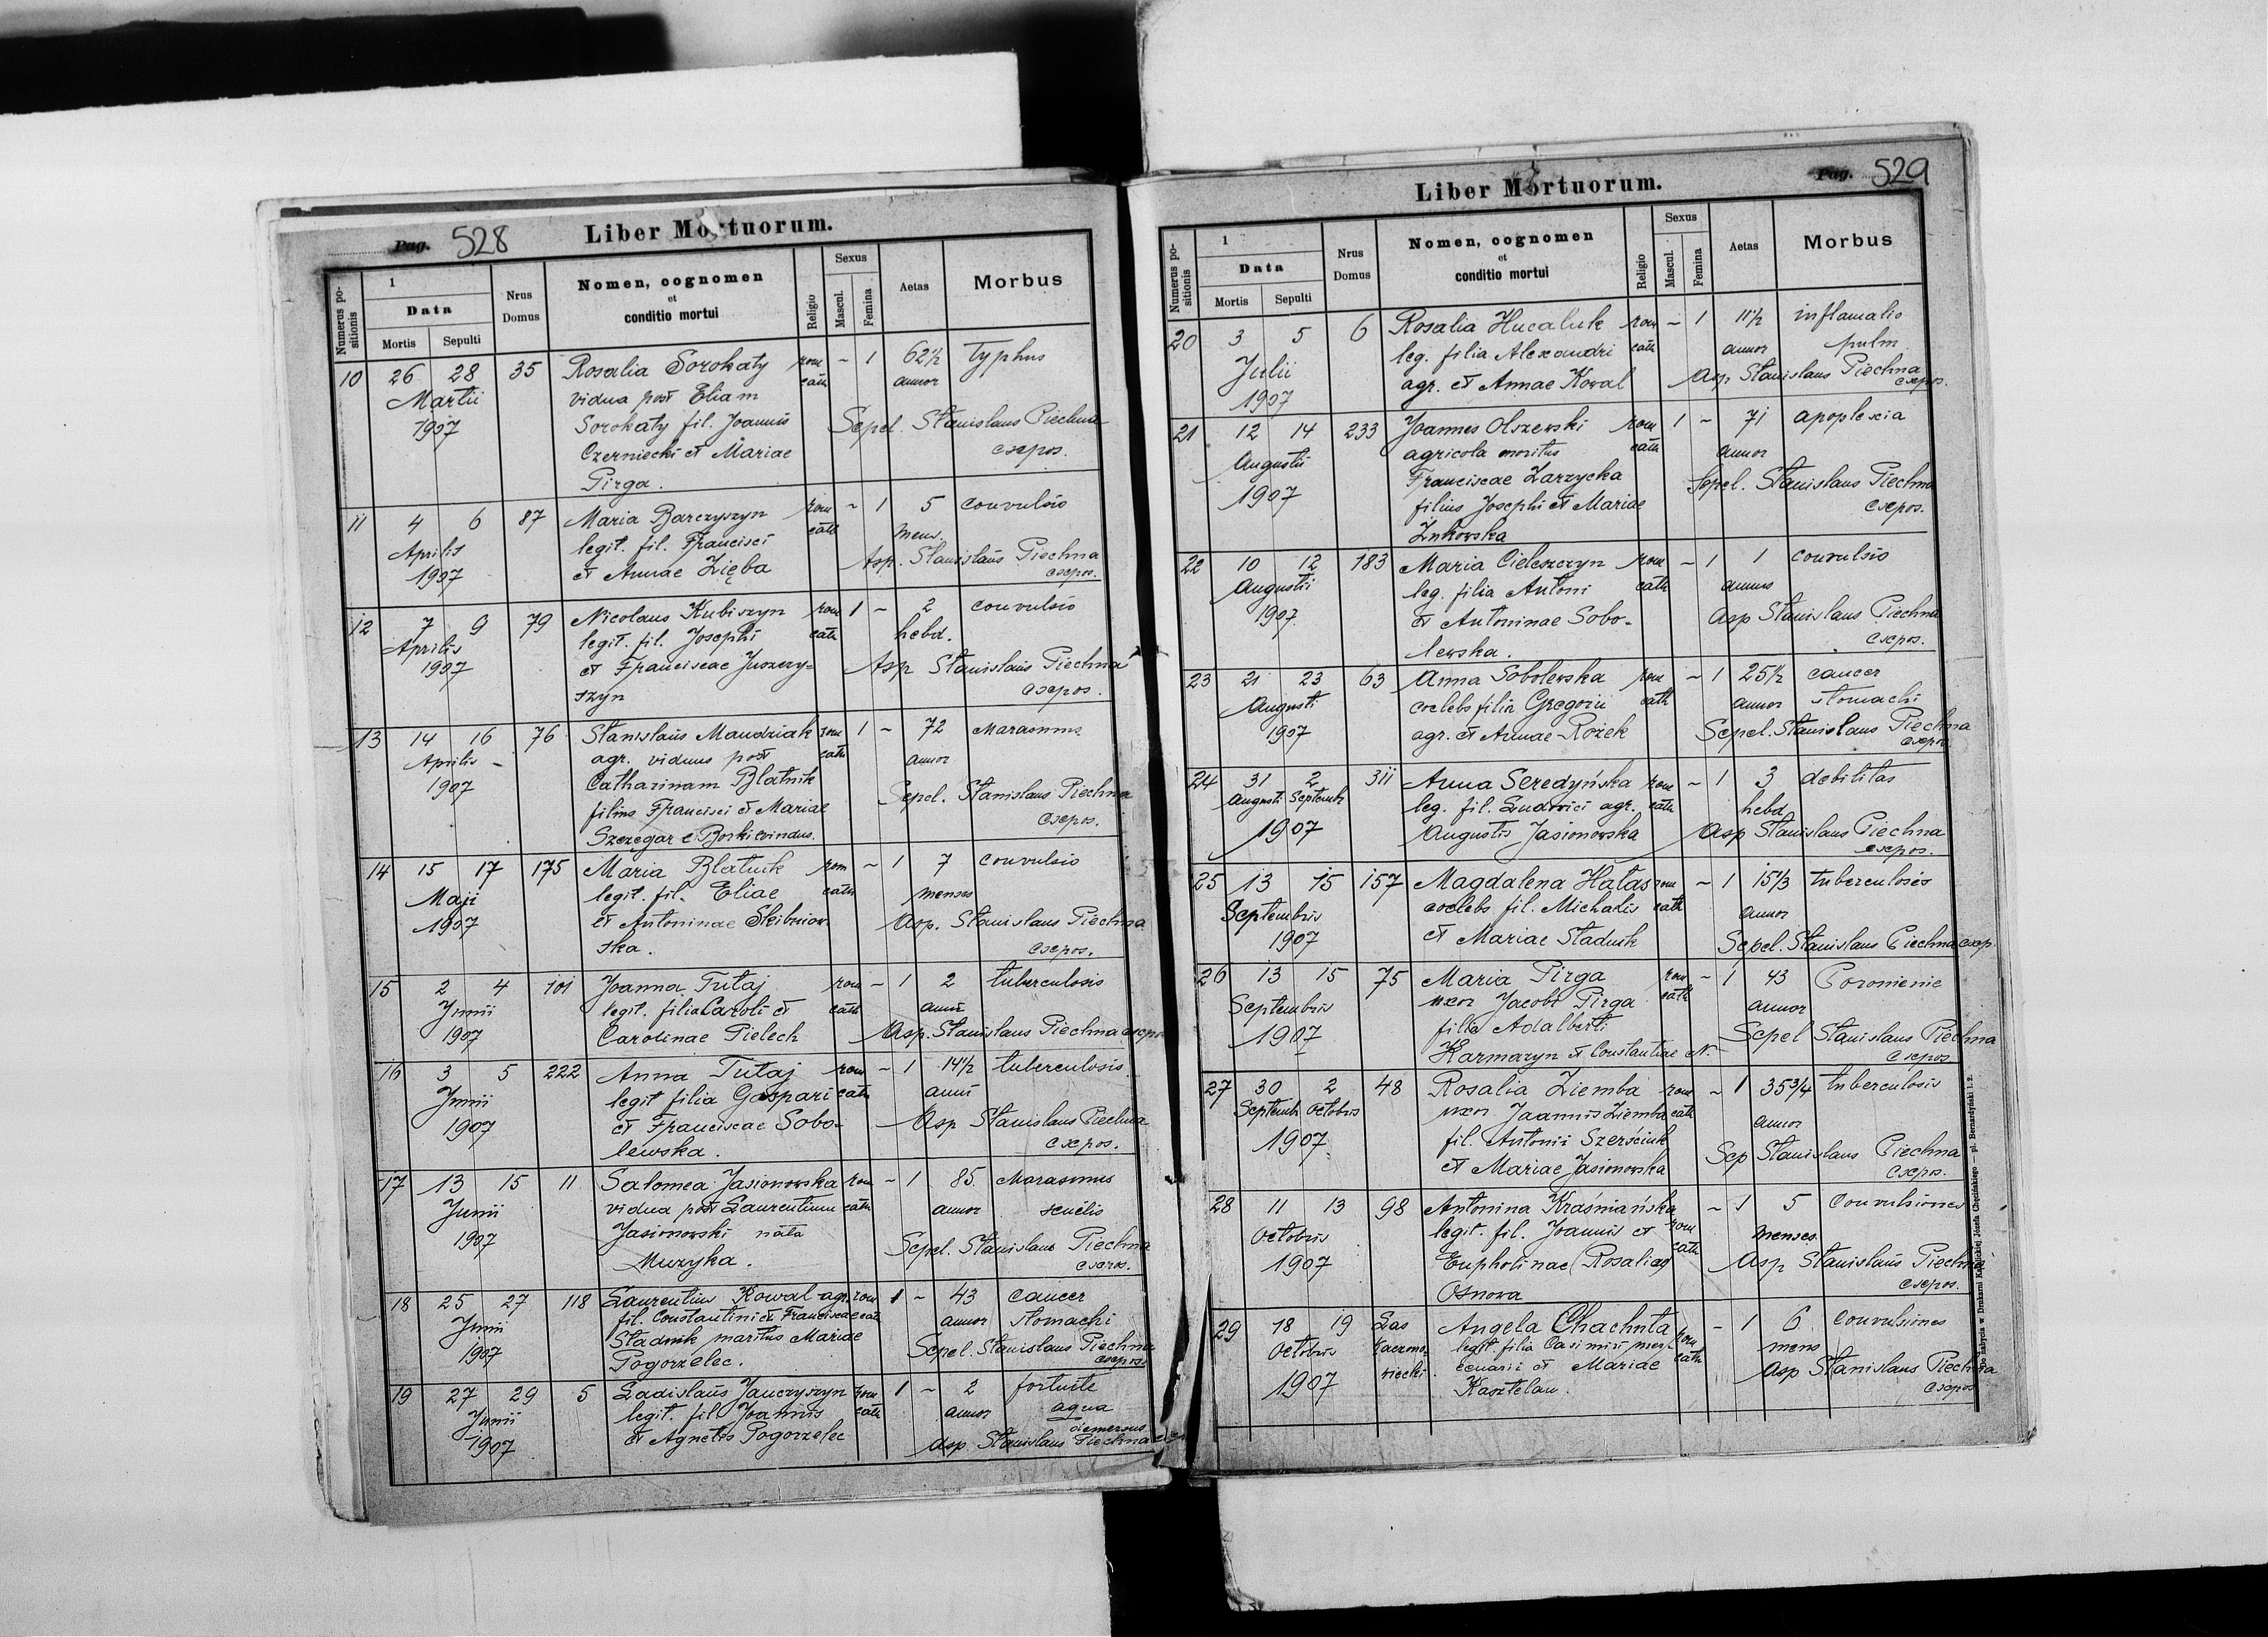 Pag. 528
Liber Mortuorum.
Numerus positionis
1
Data
Mortis Sepulti
Nrus Domus
Nomen, cognomen
et
conditio mortui
Religio
Sexus
Mascul. Femina
Aetas
Morbus
10 26 28 35 Rosalia Sorokaty rom ~ 1 62 1/2 Typhus
Martii vidua post Eliam cath annor
1907 Sorokaty fil. Joannis Sepel. Stanislaus Piechna
Czerniecki et Mariae expos.
Pirga.
11 4 6 87 Maria Barczyszyn rom ~ 1 5 convulsio
Aprilis legit. fil. Francisci cath mens.
1907 et Annae Zięba Asp. Stanislaus Piechna
expos.
12 7 9 79 Nicolaus Kubiszyn rom 1 ~ 2 convulsio
Aprilis legit. fil. Josephi cath hebd.
1907 et Franciscae Juszczy=
szyn Asp Stanislaus Piechna
expos.
13 14 16 76 Stanislaus Mandziak rom 1 ~ 72 Marasmus
Aprilis agr. viduus post cath annor
1907 Catharinam Blatnik
filius Francisci et Mariae Sepel. Stanislaus Piechna
Szczegar e expos.
14 15 17 175 Maria Blatnik rom ~ 1 7 convulsio
Maji legit. fil. Eliae cath menses
1907 et Antoninae Skibniow Asp. Stanislaus Piechna
ska. expos.
15 2 4 101 Joanna Tutaj rom ~ 1 2 tuberculosis
Junii legit. filia Caroli et cath anni
1907 Carolinae Pielech Asp. Stanislaus Piechna expos
16 3 5 222 Anna Tutaj rom ~ 1 14 1/2 tuberculosis
Junii legit filia Gaspari cath anni
1907 et Franciscae Sobo- Asp Stanislaus Piechna
lewska. expos.
17 13 15 11 Salomea Jasionowska rom ~ 1 85 Marasmus
Junii vidua post Laurentium cath annor senilis
1907 Jasionowski nata Sepel. Stanislaus Piechna
Muzyka. expos.
18 25 27 118 Laurentius Kowal agr. rom 1 ~ 43 cancer
Junii fil. Constantini et Franciscae cath annor stomachi
1907 Stadnik maritus Mariae Sepel. Stanislaus Piechna
Pogorzelec. expos.
19 27 29 5 Ladislaus Janczyszyn rom 1 ~ 2 fortuite
Junii legit. fil Joannis cath annor aqua
1907 et Agnetis Pogorzelec
Asp. Stanislaus Piechna
Liber Mortuorum.
Pag. 529
Numerus positionis
1
Data
Mortis Sepulti
Nrus Domus
Nomen, cognomen
et
conditio mortui
Religio
Sexus
Mascul. Femina
Aetas
Morbus
20 3 5 6 Rosalia Hucaluk rom ~ 1 11 1/2 inflamatio
Julii leg. filia Alexandri cath annor pulm
1907 agr. et Annae Kowal Asp Stanislaus Piechna
expos.
21 12 14 233 Joannes Olszewski rom 1 ~ 71 apoplexia
Augusti agricola maritus cath annor
1907 Franciscae Zarzycka Sepel. Stanislaus Piechna
filius Josephi et Mariae expos.
Żukowska
22 10 12 183 Maria Cieleszczyn rom ~ 1 1 convulsio
Augusti leg. filia Antoni cath annus
1907 et Antoninae Sobo- Asp Stanislaus Piechna
lewska. expos.
23 21 23 63 Anna Sobolewska rom ~ 1 25 1/2 cancer
Augusti coelebs filia Gregorii cath annor stomachi
1907 agr. et Annae Rożek Sepel. Stanislaus Piechna
expos
24 31 2 311 Anna Seredyńska rom ~ 1 3 debilitas
Augusti Septembr leg. fil. Ludovici agr. cath hebd
1907 Augustis Jasionowska Asp Stanislaus Piechna
expos.
25 13 15 157 Magdalena Hałas rom ~ 1 15 1/3 tuberculosis
Septembris coelebs fil. Michalis cath annor
1907 et Mariae Stadnik Sepel. Stanislaus Piechna exp.
26 13 15 75 Maria Pirga rom ~ 1 43 Poronienie
Septembris uxor Jacobi Pirga cath annor
1907 filia Adalberti Sepel Stanislaus Piechna
Karmazyn et Constantiae N. expos
27 30 2 48 Rosalia Ziemba rom ~ 1 35 3/4 tuberculosis
Septembr Octobris uxor Joannis Ziemba cath annor
1907 fil. Antonii Szerściuk Sep Stanislaus Piechna
et Mariae Jasionowska expos.
28 11 13 98 Antonina Kraśniańska rom ~ 1 5 Convulsiones
Octobris legit. fil. Joannis et cath menses
1907 Eupholinae (Rosaliae) Asp Stanislaus Piechna
Osnowa expos.
29 18 19 Las Angela Chachuta rom ~ 1 6 Convulsiones
Octobris legit. filia Casimiri cath mens
1907 et Mariae Asp Stanislaus Piechna
Kasztelan. expos
Do nabycia w Drukarni Katolickiej Józefa Chęcińskiego — pl. Bernardyński l. 2.